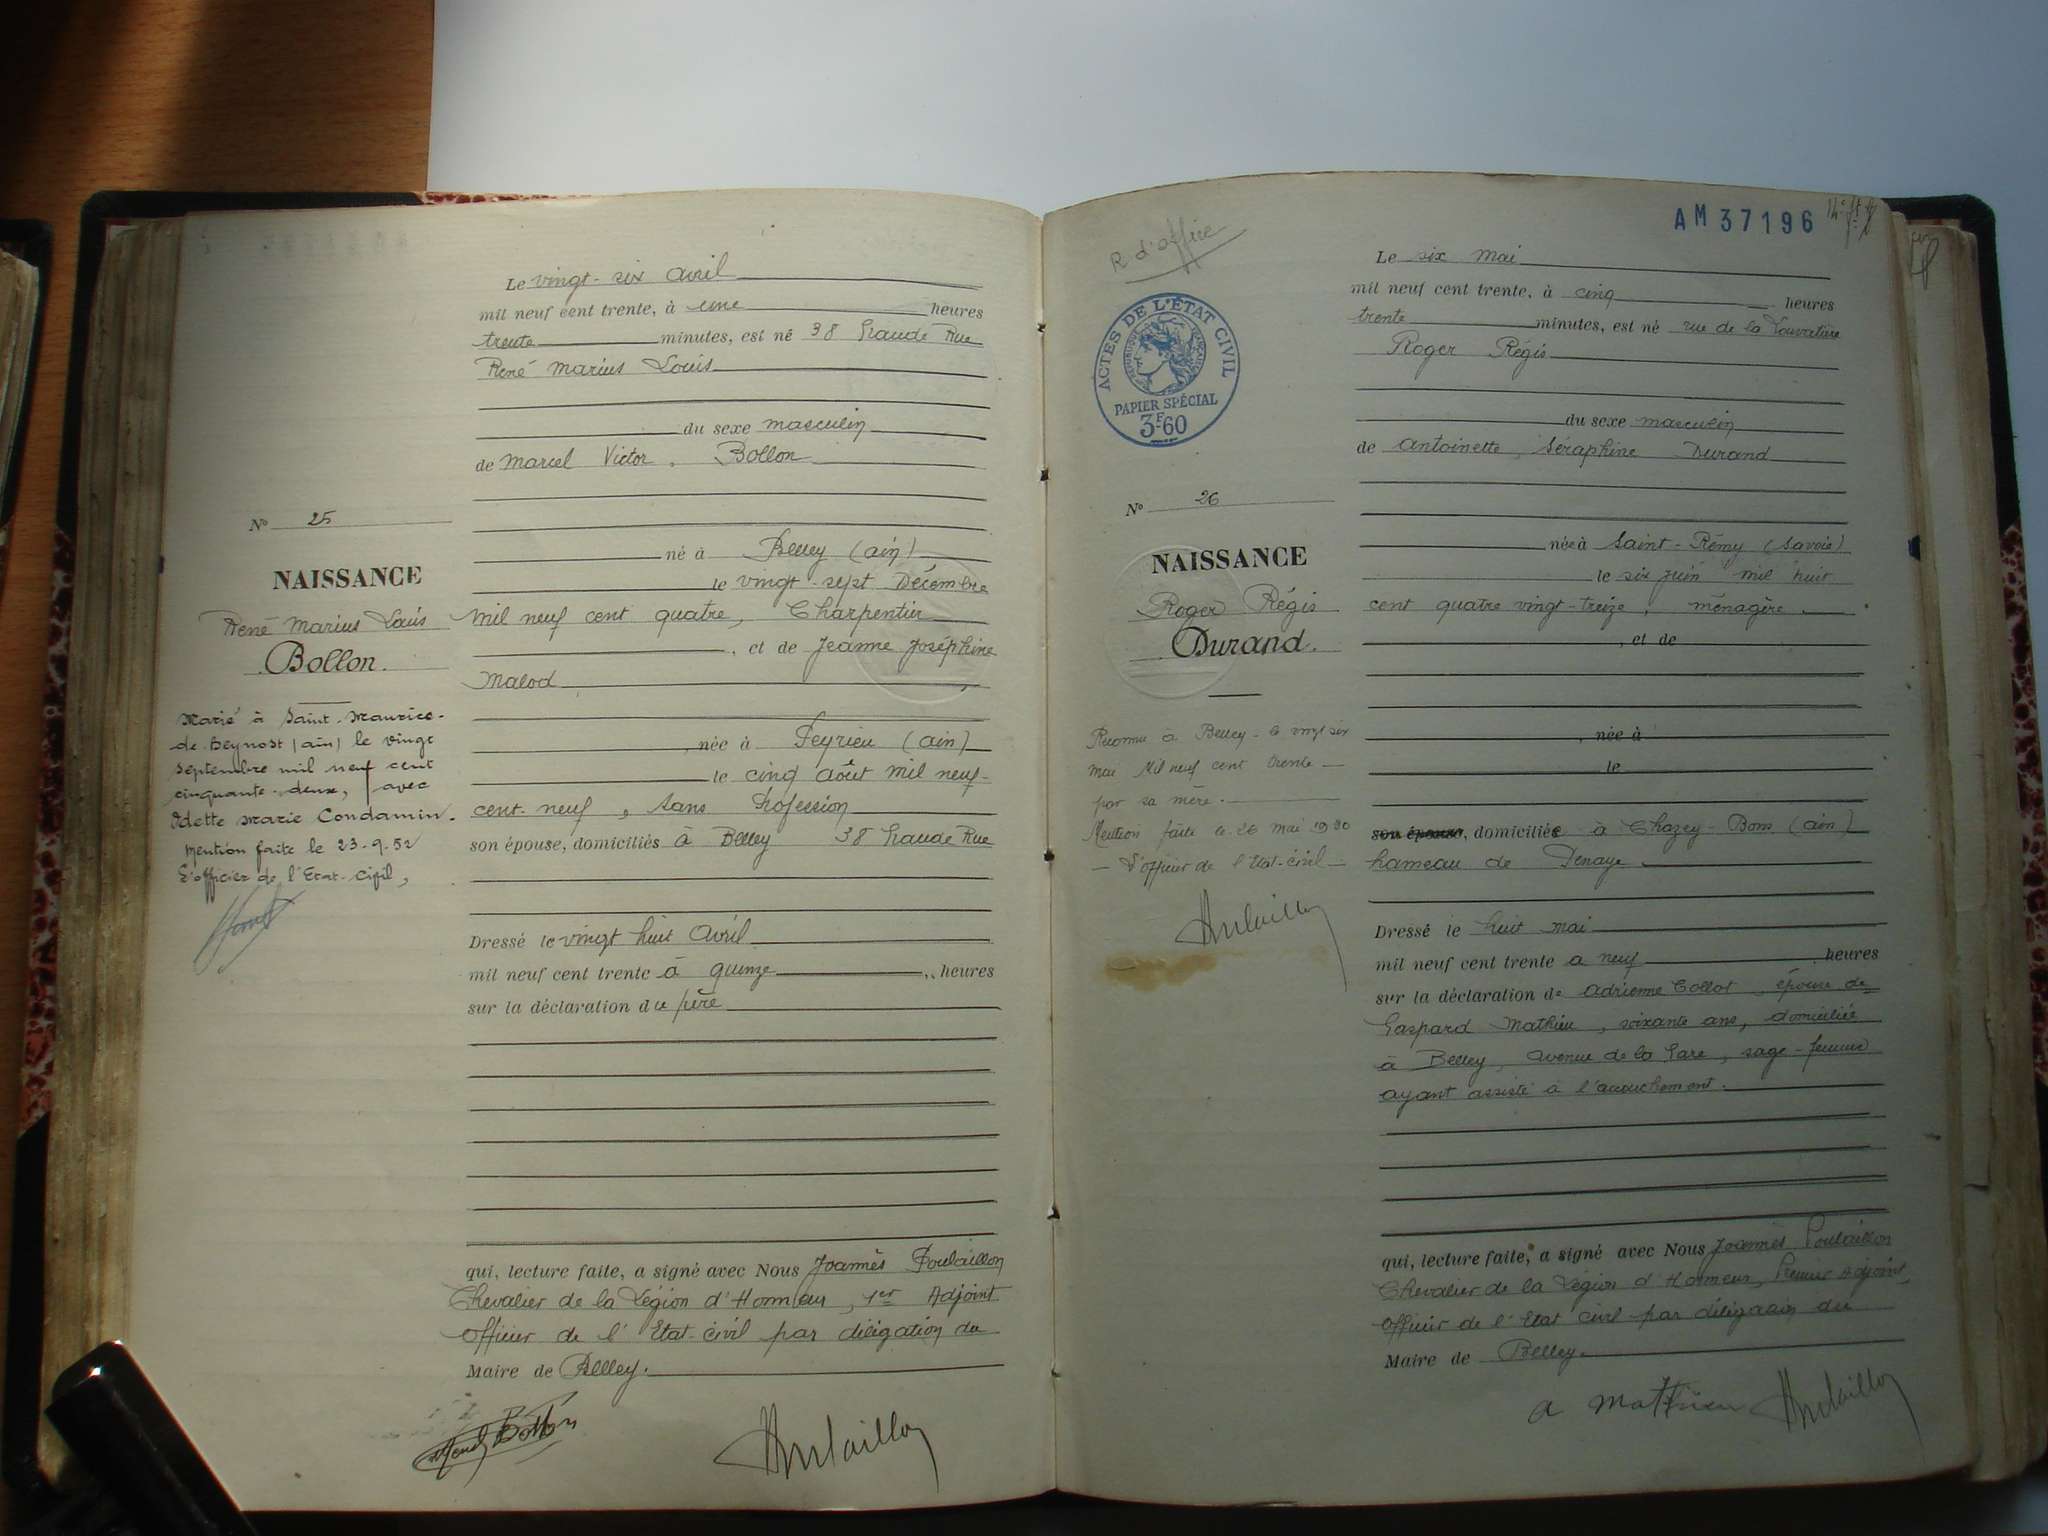 Le vingt-six avril
mil neuf cent trente, à une heures
trente minutes, est né 38 Grande Rue
René Marius Louis
du sexe masculin
de Marcel Victor, Bollon
né à Belley (ain)
le vingt-sept Décembre
mil neuf cent quatre, Charpentier
, et de Jeanne Joséphine
Malod
, née à Peyrieu (ain)
le cinq août mil neuf-
cent-neuf, sans Profession
son épouse, domiciliés à Belley 38 Grande Rue
Dressé le vingt huit Avril
mil neuf cent trente à quinze heures
sur la déclaration du père
qui, lecture faite, a signé avec Nous Joannès Poulaillon
Chevalier de la Légion d'Honneur, 1er Adjoint
Officier de l'Etat-civil par délégation du
Maire de Belley.
N° 25
NAISSANCE
René Marius Louis
Bollon.
Marié à Saint-Maurice-
de-Beynost (ain) le vingt
septembre mil neuf cent
cinquante-deux, avec
Odette Marie Condamin.
Mention faite le 23-9-52
L'officier de l'Etat-civil,
Bollon
Poulaillon
R d'office
AM 37196
ACTES DE L'ÉTAT CIVIL
RÉPUBLIQUE FRANÇAISE
PAPIER SPÉCIAL
3F60
Le six mai
mil neuf cent trente, à cinq heures
trente minutes, est né rue de la
Roger Régis
du sexe masculin
de Antoinette, Séraphine Durand
née à Saint-Rémy (Savoie)
le six juin mil huit
cent quatre vingt-treize, ménagère.
, et de
, née à
le
son épouse, domiciliée à Chazey-Bons (ain)
hameau de
Dressé le huit mai
mil neuf cent trente à neuf heures
sur la déclaration de Adrienne Collot, épouse de
Gaspard Mathieu, soixante ans, domiciliée
à Belley, avenue de la Gare, sage-femme
ayant assisté à l'accouchement.
qui, lecture faite, a signé avec Nous Joannès Poulaillon
Chevalier de la Légion d'Honneur, Premier Adjoint
Officier de l'Etat civil par délégation du
Maire de Belley.
N° 26
NAISSANCE
Roger Régis
Durand.
Reconnu à Belley le vingt six
mai Mil neuf cent trente
par sa mère.
Mention faite le 26 mai 1930
L'officier de l'Etat-civil
Poulaillon
a Mathieu Poulaillon